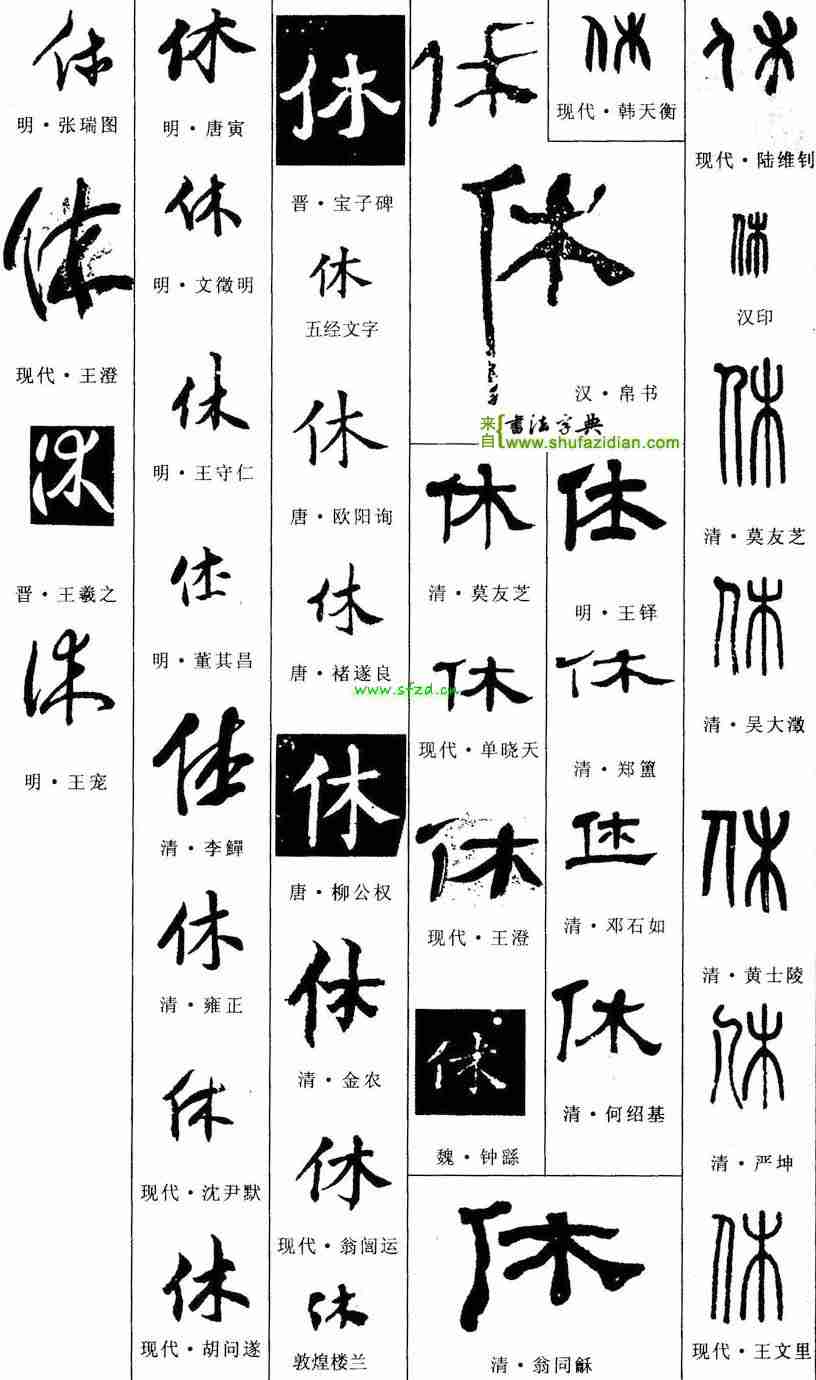 休
明·张瑞图
休
现代·王澄
休
晋·王羲之
休
明·王宠
休
明·唐寅
休
明·文徵明
休
明·王守仁
休
明·董其昌
休
清·李鱓
休
清·雍正
休
现代·沈尹默
休
现代·胡问遂
休
晋·宝子碑
休
五经文字
休
唐·欧阳询
休
唐·褚遂良
www.sfzd.cn
休
唐·柳公权
休
清·金农
休
现代·翁闿运
休
敦煌楼兰
休
休
现代·韩天衡
休
汉·帛书
来自{书法字典
www.shufazidian.com
休
清·莫友芝
休
现代·单晓天
休
现代·王澄
休
魏·钟繇
休
明·王铎
休
清·郑簠
休
清·邓石如
休
清·何绍基
休
清·翁同龢
休
现代·陆维钊
休
汉印
休
清·莫友芝
休
清·吴大澂
休
清·黄士陵
休
清·严坤
休
现代·王文里